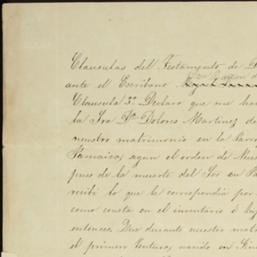 Clausulas del Testamento de D
ante el Escribano
Clausula 3ª Declaro que me ha
la Sra Dª Dolores Martinez de
nuestro matrimonio en la Parro
Jamaica, segun el orden de Nues
pues de la muerte del Sor en Pa
recibi lo que le correspondia por
como consta en el inventario ó
entonces. Que durante nuestro mat
el primero Ventura, nacido en Kin